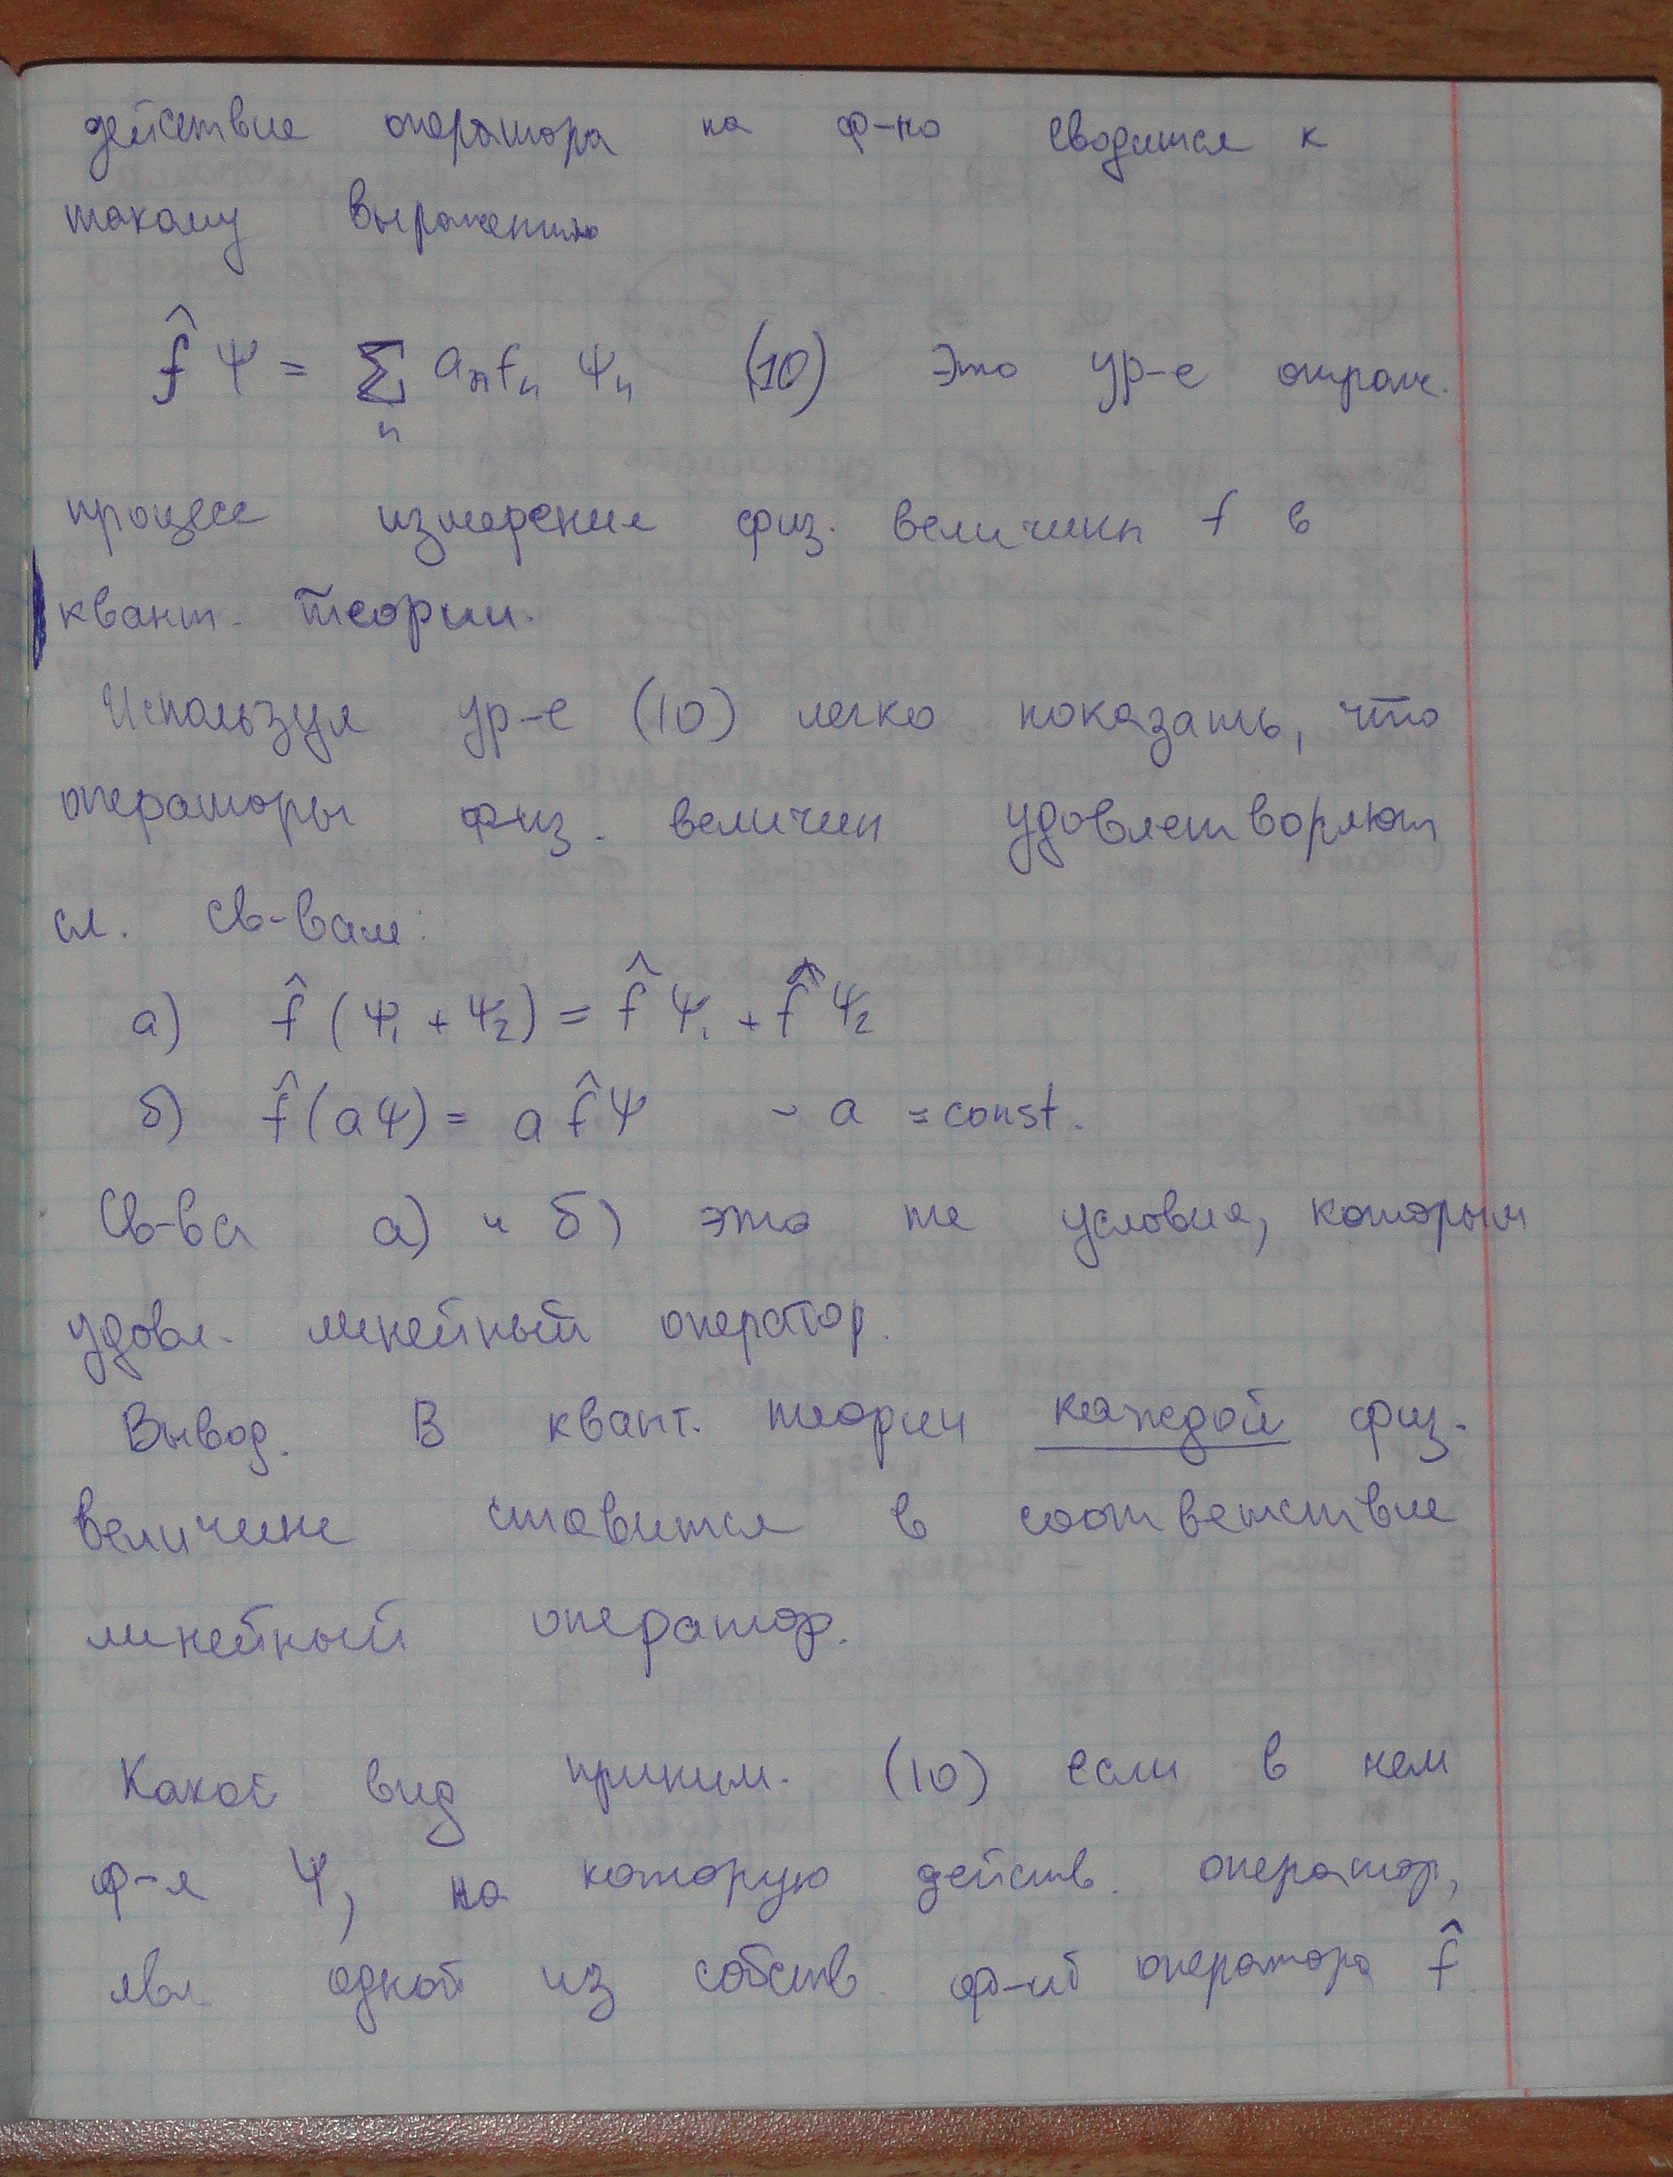 действие оператора на ф-ю сводится к
такому выражению
f̂ Ψ = Σ_n a_n f_n Ψ_n (10) Это ур-е отраж.
процесс измерения физ. величины f в
квант. теории.
Используя ур-е (10) легко показать, что
операторы физ. величин удовлетворяют
сл. св-вам:
а) f̂ (Ψ₁ + Ψ₂) = f̂ Ψ₁ + f̂ Ψ₂
б) f̂ (aΨ) = a f̂ Ψ - a = const.
Св-ва а) и б) это те условия, которым
удовл. линейный оператор.
Вывод. В квант. теории каждой физ.
величине ставится в соответствие
линейный оператор.
Какой вид приним. (10) если в нем
ф-я Ψ, на которую действ. оператор,
явл одной из собств. ф-ий оператора f̂